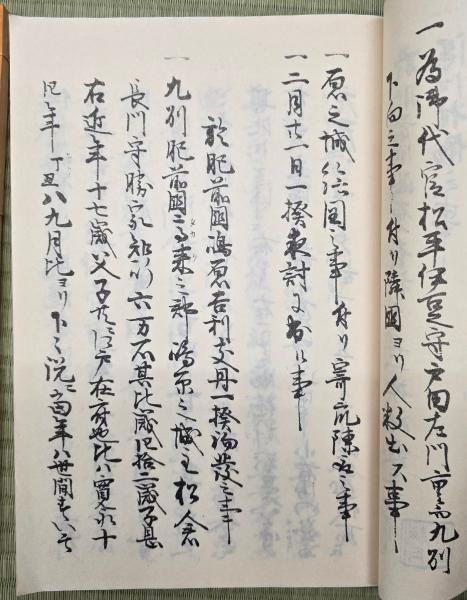 一 為御代官松平伊豆守戸田左門重而九州
下向之事 付り隣国ヨリ人数出ス事
一 原之城仕陣之事 付り寄衆陣取之事
一 二月廿一日一揆夜討ニ出ル事
於肥前國嶋原吉利支丹一揆蜂起之事
一 九州肥前國高来之郡嶋原之城主松倉
長門守勝家知行六万石其比歳四拾二歳子息
右近年十七歳父子共ニ江戸在府也比ハ寛永十
四年丁丑八九月比ヨリ下々説ニ当年ハ世間